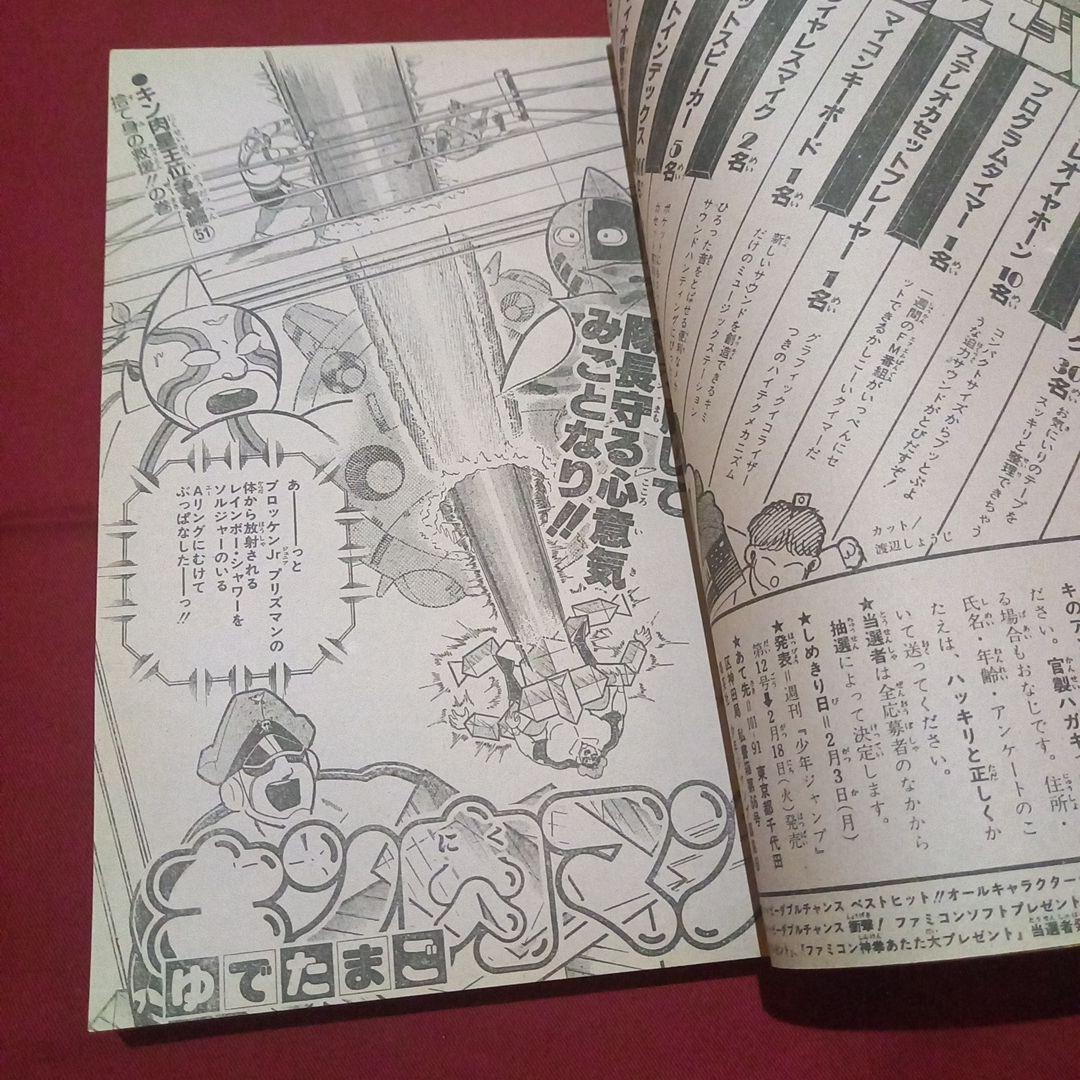 レオイヤホーン 10名
コンパクトサイズからブッとぶよ
うな迫力サウンドがとびだすぞ！
30名
お気にいりのテープを
スッキリと管理できちゃう
プログラムタイマー 1名
一週間のFM番組がいっぺんにセ
ットできるかしこーいタイマーだ
ステレオカセットプレーヤー 1名
グラフィックイコライザー
つきのハイテクメカニズム
マイコンキーボード 1名
新しいサウンドを創造できるキミ
だけのミュージックステーション
イヤレスマイク 2名
ひろった音をとばせる便利な
サウンドハンティング
ットスピーカー 5名
トインデックス
カット／
渡辺しょうじ
官製ハガキ
ださい。
る場合もおなじです。住所・
氏名・年齢・アンケートのこ
たえは、ハッキリと正しくか
いて送ってください。
★当選者は全応募者のなかから
抽選によって決定します。
★しめきり日＝2月3日（月）
★発表＝週刊『少年ジャンプ』
第12号⬇2月18日（火）発売
★あて先＝101-91 東京都千代田
区神田局
ダブルチャンス ベストヒット!!オールキャラクター
ダブルチャンス 衝撃！ ファミコンソフトプレゼント
『ファミコン神拳あたた大プレゼント』当選者発
●キン肉星王位争奪編 51
捨て身の救援!!の巻
して
隊長守る心意気
みごとなり!!
あ――っと
ブロッケンJr プリズマンの
体から放射される
レインボー・シャワーを
ソルジャーのいる
Aリングにむけて
ぶっぱなした――っ!!
キン肉マン
ゆでたまご